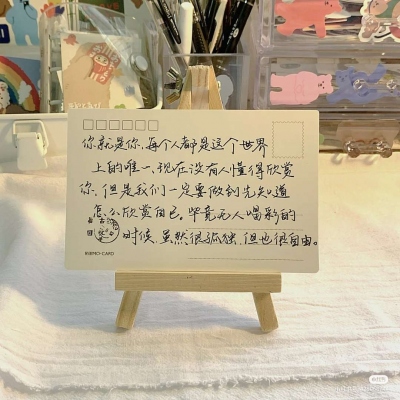 你就是你，每个人都是这个世界
上的唯一，现在没有人懂得欣赏
你，但是我们一定要做到先知道
怎么欣赏自己，毕竟无人喝彩的
时候，虽然很孤独，但也很自由。